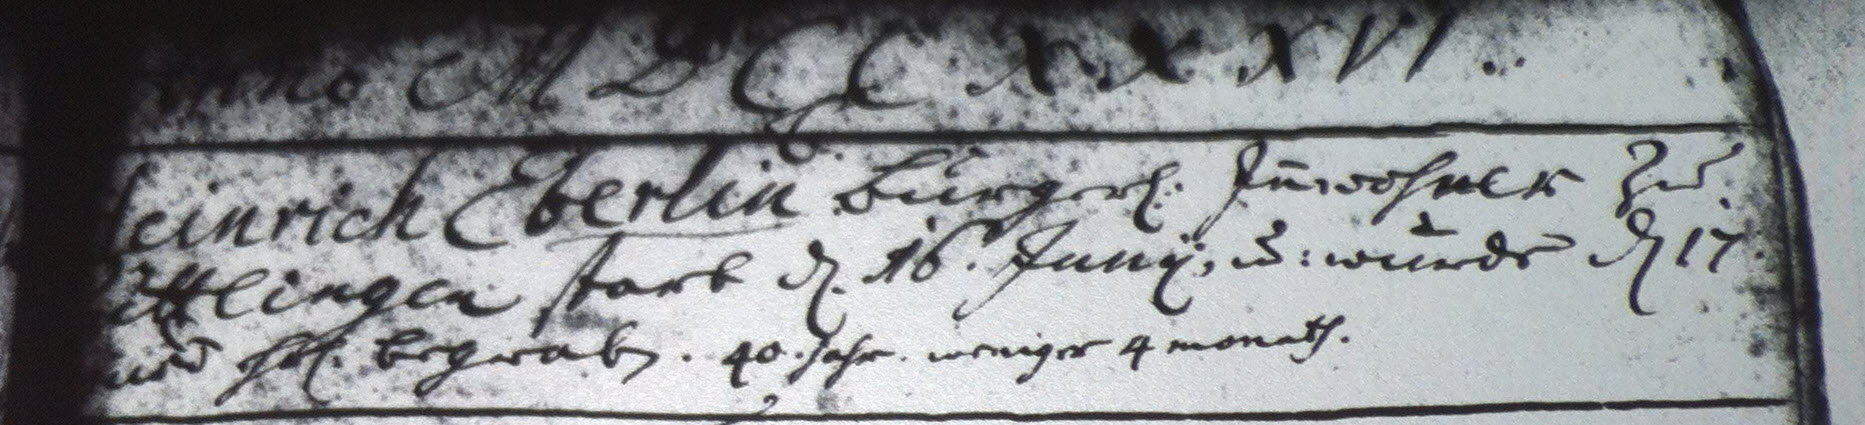 Anno MDCCXXXVI.
Heinrich Eberlin burgerl. Inwohner zu
ttlingen starb d. 16. Junij, u: wurde d. 17
begrabn. 40. Jahr. weniger 4 monath.